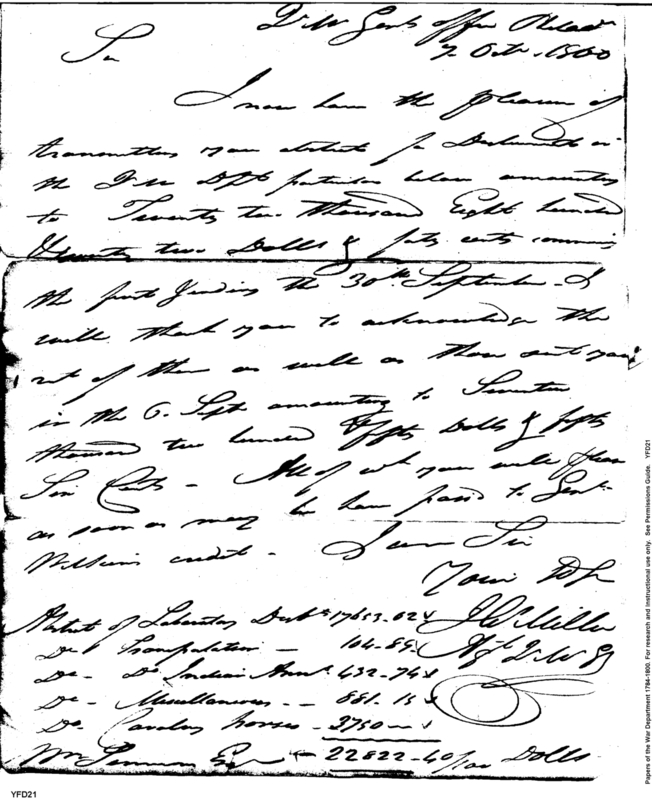 Office
7 Octr. 1800
Sir
I now have the pleasure of
transmitting you abstracts for Disbursments in
the Q M Dpt particulars below amounting
to Twenty two thousand Eight hundred
twenty two Dolls & forty cents
the first & ending the 30th September - I
will thank you to acknowledge the
rect of them as well as those sent you
in the 6. Sept amounting to Seventeen
thousand two hundred & fifty Dolls & fifty
Six Cents - All of wh you will please
as soon as may be have paid to Genl
Wilkins credit - I am Sir
Your Obt
J W Miller
Q M G
Abstract of Laboratory 17653.62
Do Transportation - 104.89
Do - Do Indian 432-74
Do - Miscellaneous - - 881.15
Do Cavalry horses - 3750 -
Wm Simmons Esqr - 22822-40/100 Dolls
Papers of the War Department 1784-1800. For research and instructional use only. See Permissions Guide. YFD21
YFD21